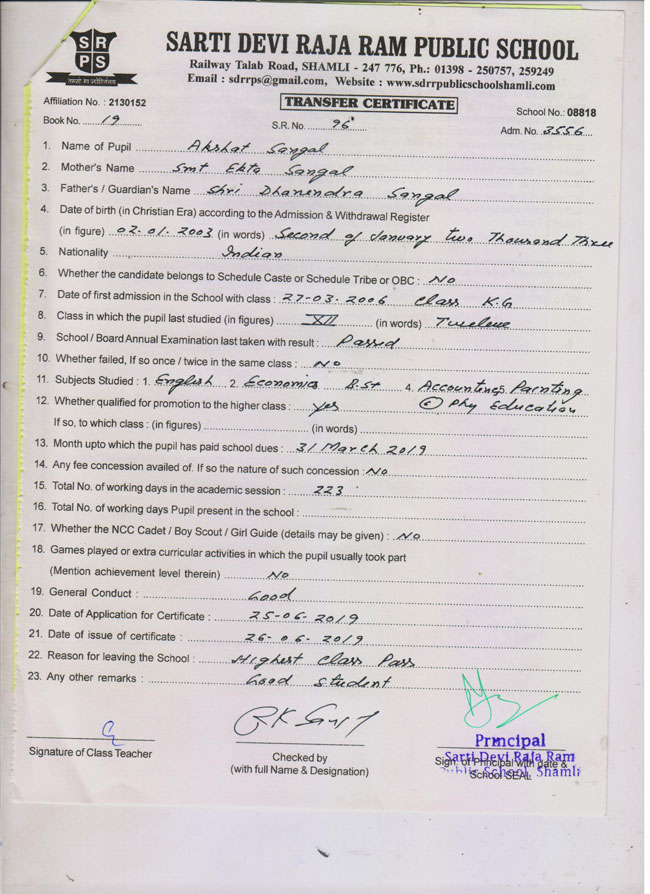 S R
P S
तमसो मा ज्योतिर्गमय
SARTI DEVI RAJA RAM PUBLIC SCHOOL
Railway Talab Road, SHAMLI - 247 776, Ph.: 01398 - 250757, 259249
Email : sdrrps@gmail.com, Website : www.sdrrpublicschoolshamli.com
Affiliation No. : 2130152
TRANSFER CERTIFICATE
School No.: 08818
Book No. 19 S.R. No. 96 Adm. No. 3556
1. Name of Pupil Akshat Sangal
2. Mother's Name Smt Ekta Sangal
3. Father's / Guardian's Name Shri Dhanendra Sangal
4. Date of birth (in Christian Era) according to the Admission & Withdrawal Register
(in figure) 02.01.2003 (in words) Second of January two Thousand Three
5. Nationality Indian
6. Whether the candidate belongs to Schedule Caste or Schedule Tribe or OBC : No
7. Date of first admission in the School with class : 27-03-2006 Class K.G
8. Class in which the pupil last studied (in figures) XII (in words) Twelve
9. School / Board Annual Examination last taken with result : Passed
10. Whether failed, If so once / twice in the same class : No
11. Subjects Studied : 1. English 2. Economics B.St 4. Painting
12. Whether qualified for promotion to the higher class : yes 6 Phy Education
If so, to which class : (in figures) (in words)
13. Month upto which the pupil has paid school dues : 31 March 2019
14. Any fee concession availed of. If so the nature of such concession : No
15. Total No. of working days in the academic session : 223
16. Total No. of working days Pupil present in the school :
17. Whether the NCC Cadet / Boy Scout / Girl Guide (details may be given) : No
18. Games played or extra curricular activities in which the pupil usually took part
(Mention achievement level therein) No
19. General Conduct : Good
20. Date of Application for Certificate : 25-06-2019
21. Date of issue of certificate : 26-06-2019
22. Reason for leaving the School : Highest Class Pass
23. Any other remarks : Good Student
Signature of Class Teacher
Checked by
(with full Name & Designation)
Principal
Sarti Devi Raja Ram
Public School, Shamli
Sign. of Principal with date &
School SEAL